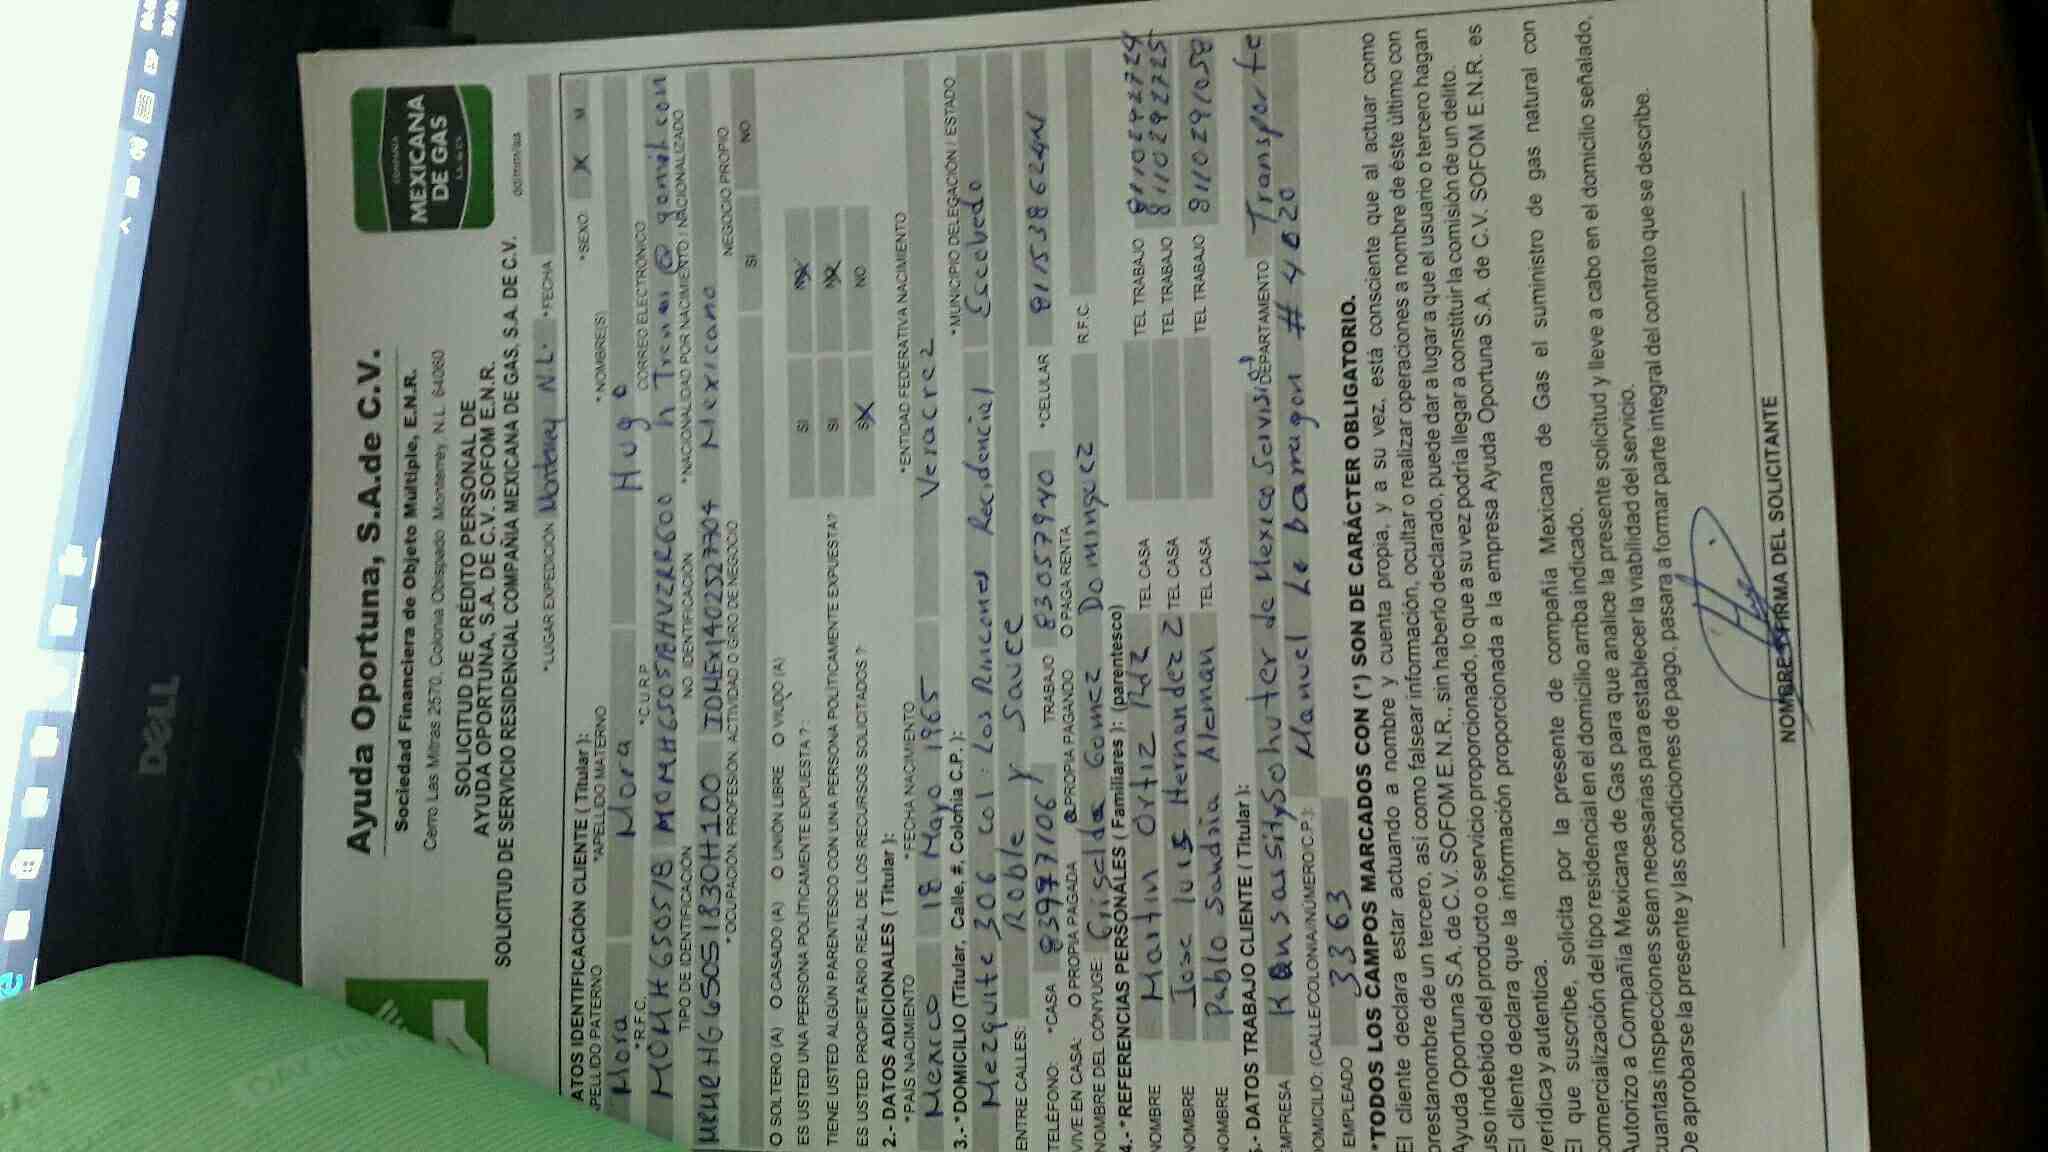 DELL
MEXICANA
DE GAS
Ayuda Oportuna, S.A.de C.V.
Sociedad Financiera de Objeto Multiple, E.N.R.
Cerro Las Mitras 2570, Colonia Obispado Monterrey, N.L. 64060
SOLICITUD DE CRÉDITO PERSONAL DE
AYUDA OPORTUNA, S.A. DE C.V. SOFOM E.N.R.
SOLICITUD DE SERVICIO RESIDENCIAL COMPAÑIA MEXICANA DE GAS, S.A. DE C.V.
*LUGAR EXPEDICIÓN Monterrey N.L. *FECHA dd/mm/aa
ATOS IDENTIFICACIÓN CLIENTE ( Titular ):
APELLIDO PATERNO *APELLIDO MATERNO *NOMBRE(S) *SEXO: X M
Mora Mora Hugo
*R.F.C. *C.U.R.P CORREO ELECTRONICO
MOMH650518 MOMH650518HVZRRG00 @ gamil.com
TIPO DE IDENTIFICACIÓN NO. IDENTIFICACIÓN *NACIONALIDAD POR NACIMIENTO / NACIONALIZADO
Mexicano
*OCUPACIÓN, PROFESIÓN, ACTIVIDAD O GIRO DE NEGOCIO NEGOCIO PROPIO
SI NO
O SOLTERO (A) O CASADO (A) O UNIÓN LIBRE O VIUDO (A)
ES USTED UNA PERSONA POLÍTICAMENTE EXPUESTA ? : SI NO
TIENE USTED ALGÚN PARENTESCO CON UNA PERSONA POLÍTICAMENTE EXPUESTA? SI NO
ES USTED PROPIETARIO REAL DE LOS RECURSOS SOLICITADOS ? SI NO
2.- DATOS ADICIONALES ( Titular ):
*PAÍS NACIMIENTO *FECHA NACIMIENTO *ENTIDAD FEDERATIVA NACIMIENTO
Mexico 18 Mayo 1965 Veracrez
3.- *DOMICILIO (Titular, Calle, #, Colonia C.P.): *MUNICIPIO DELEGACIÓN / ESTADO
Mezquite 306 col: Los Rincones Recidencial Escobedo
ENTRE CALLES: Roble y Sauce
TELÉFONO: *CASA 83971061 TRABAJO 83057940 *CELULAR
VIVE EN CASA: O PROPIA PAGADA PROPIA PAGANDO O PAGA RENTA
NOMBRE DEL CÓNYUGE: Griselda Gomez Dominguez R.F.C.
4.- *REFERENCIAS PERSONALES ( Familiares ): (parentesco)
NOMBRE Martin Ortiz Rdz TEL CASA TEL TRABAJO
NOMBRE Jose luis Hernandez Z TEL CASA TEL TRABAJO 8110292725
NOMBRE Pablo Sandria Aleman TEL CASA TEL TRABAJO 8110291058
5.- DATOS TRABAJO CLIENTE ( Titular ):
EMPRESA de Mexico DEPARTAMENTO Transporte
DOMICILIO: (CALLE/COLONIA/NÚMERO/C.P.): Manuel
EMPLEADO 3363
*TODOS LOS CAMPOS MARCADOS CON (*) SON DE CARÁCTER OBLIGATORIO.
El cliente declara estar actuando a nombre y cuenta propia, y a su vez, está consciente que al actuar como
prestanombre de un tercero, así como falsear información, ocultar o realizar operaciones a nombre de éste último con
Ayuda Oportuna S.A. de C.V. SOFOM E.N.R., sin haberlo declarado, puede dar a lugar a que el usuario o tercero hagan
uso indebido del producto o servicio proporcionado, lo que a su vez podría llegar a constituir la comisión de un delito.
El cliente declara que la información proporcionada a la empresa Ayuda Oportuna S.A. de C.V. SOFOM E.N.R. es
verídica y autentica.
El que suscribe, solicita por la presente de compañía Mexicana de Gas el suministro de gas natural con
comercialización del tipo residencial en el domicilio arriba indicado.
Autorizo a Compañia Mexicana de Gas para que analice la presente solicitud y lleve a cabo en el domicilio señalado,
cuantas inspecciones sean necesarias para establecer la viabilidad del servicio.
De aprobarse la presente y las condiciones de pago, pasara a formar parte integral del contrato que se describe.
NOMBRE Y FIRMA DEL SOLICITANTE